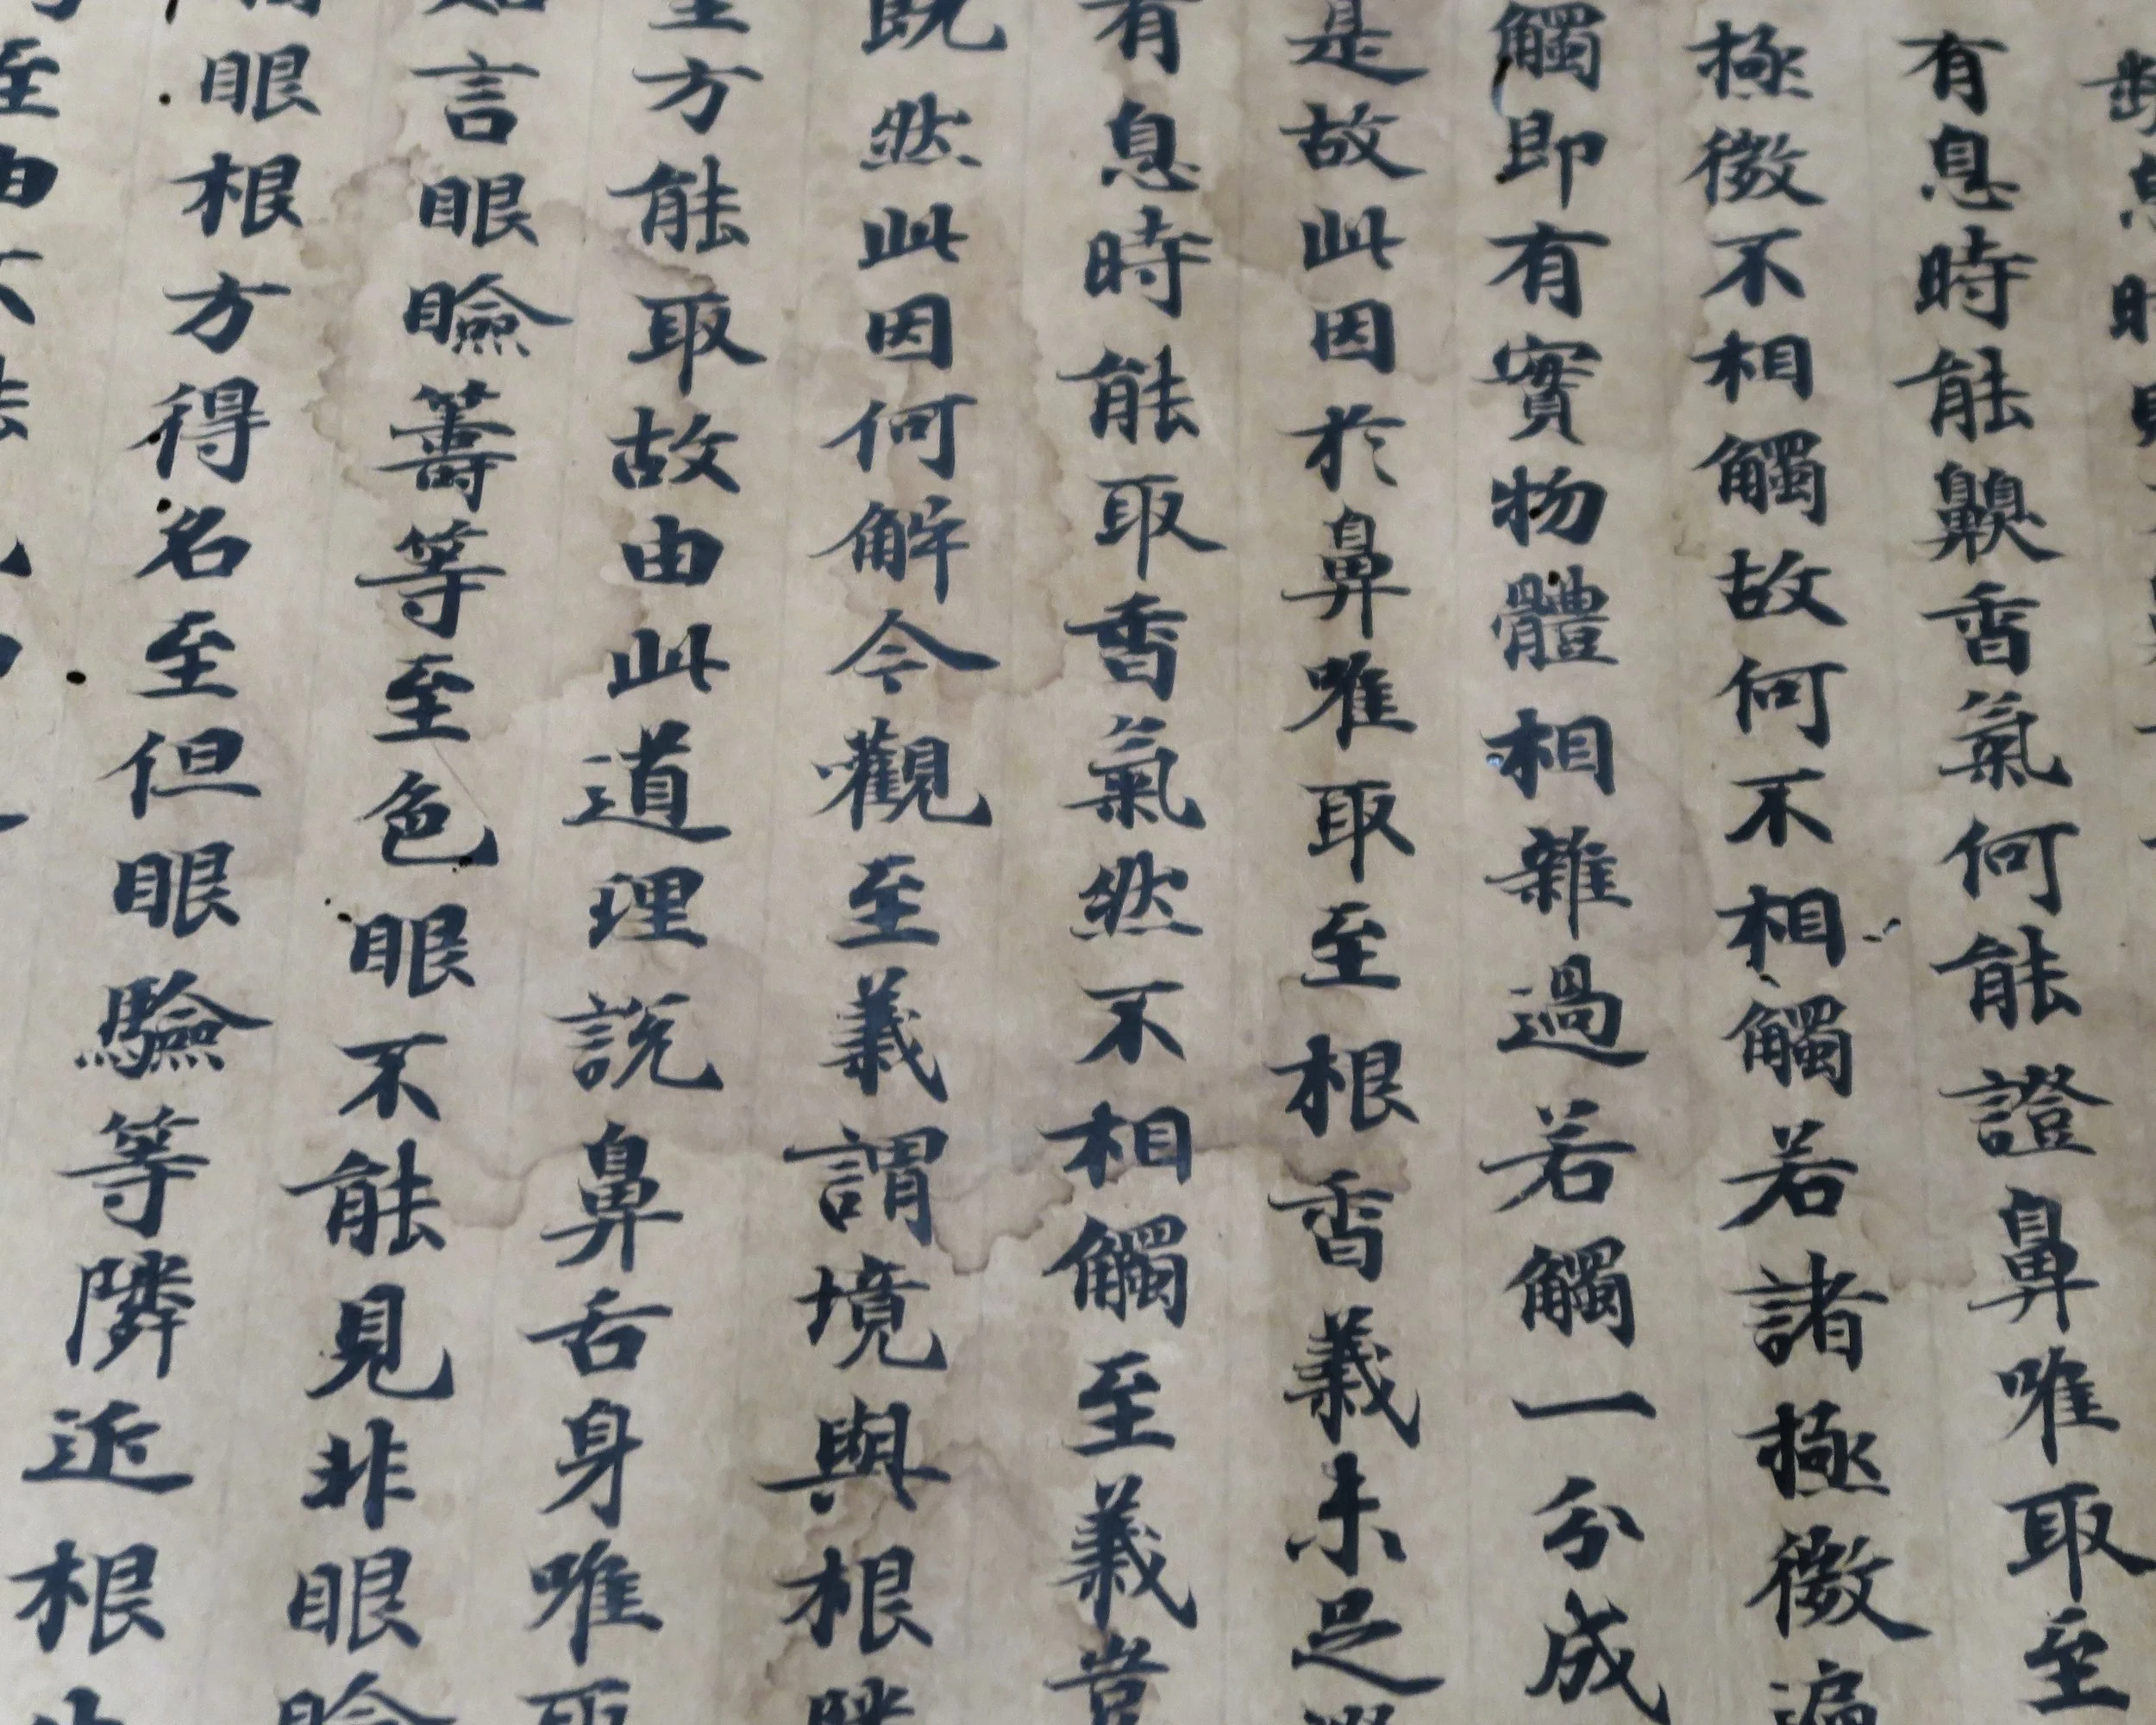 有息時能齅香氣何能證鼻唯取至
極微不相觸故何不相觸若諸極微遍
觸即有實物體相雜過若觸一分成
是故此因於鼻唯取至根香義未足
有息時能取香氣然不相觸至義豈
既然此因何解今觀至義謂境與根隣
至方能取故由此道理說鼻舌身唯取
言眼瞼籌等至色眼不能見非眼瞼
眼根方得名至但眼驗等隣近根
至由不